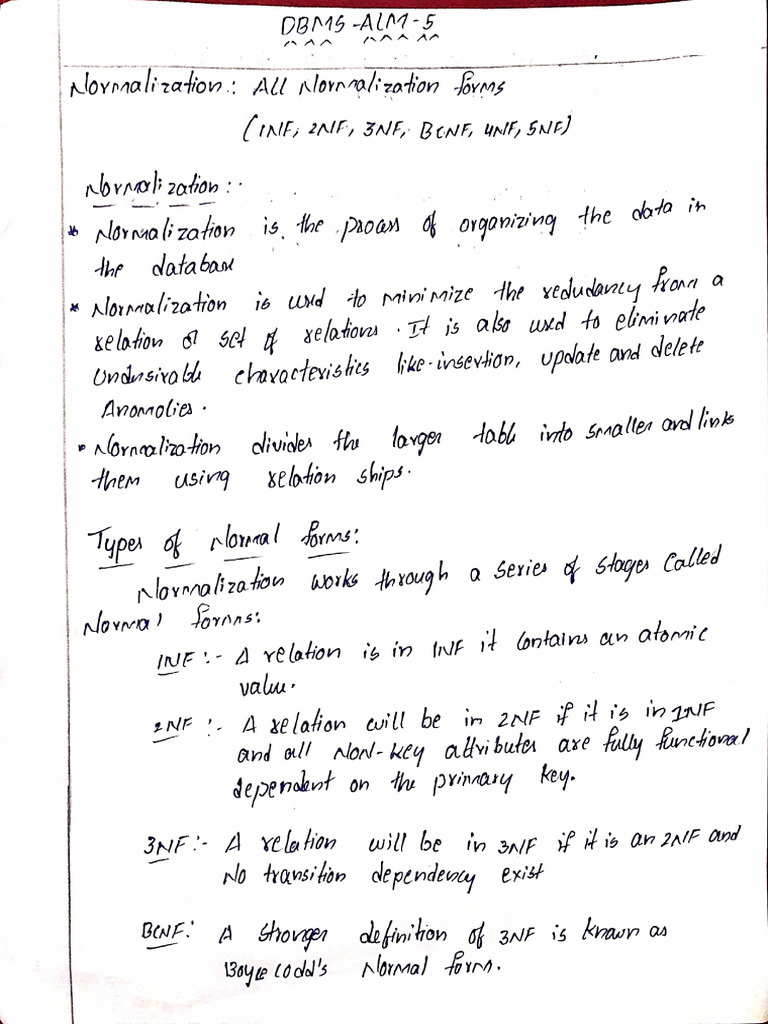 DBMS-ALM-5
Normalization: All Normalization forms
(1NF, 2NF, 3NF, BCNF, 4NF, 5NF)
Normalization:-
* Normalization is the process of organizing the data in
the database
* Normalization is used to minimize the redudancy from a
relation or set of relations. It is also used to eliminate
Undesirable characteristics like-insertion, update and delete
Anomolies.
* Normalization divides the larger table into smaller and links
them using relation ships.
Types of Normal forms:
Normalization works through a series of stages called
Normal forms:
1NF:- A relation is in 1NF it contains an atomic
value.
2NF:- A relation will be in 2NF if it is in 1NF
and all Non-key attributes are fully functional
dependent on the primary key.
3NF:- A relation will be in 3NF if it is an 2NF and
No transition dependency exist
BCNF: A stronger definition of 3NF is known as
Boyce Codd's Normal form.